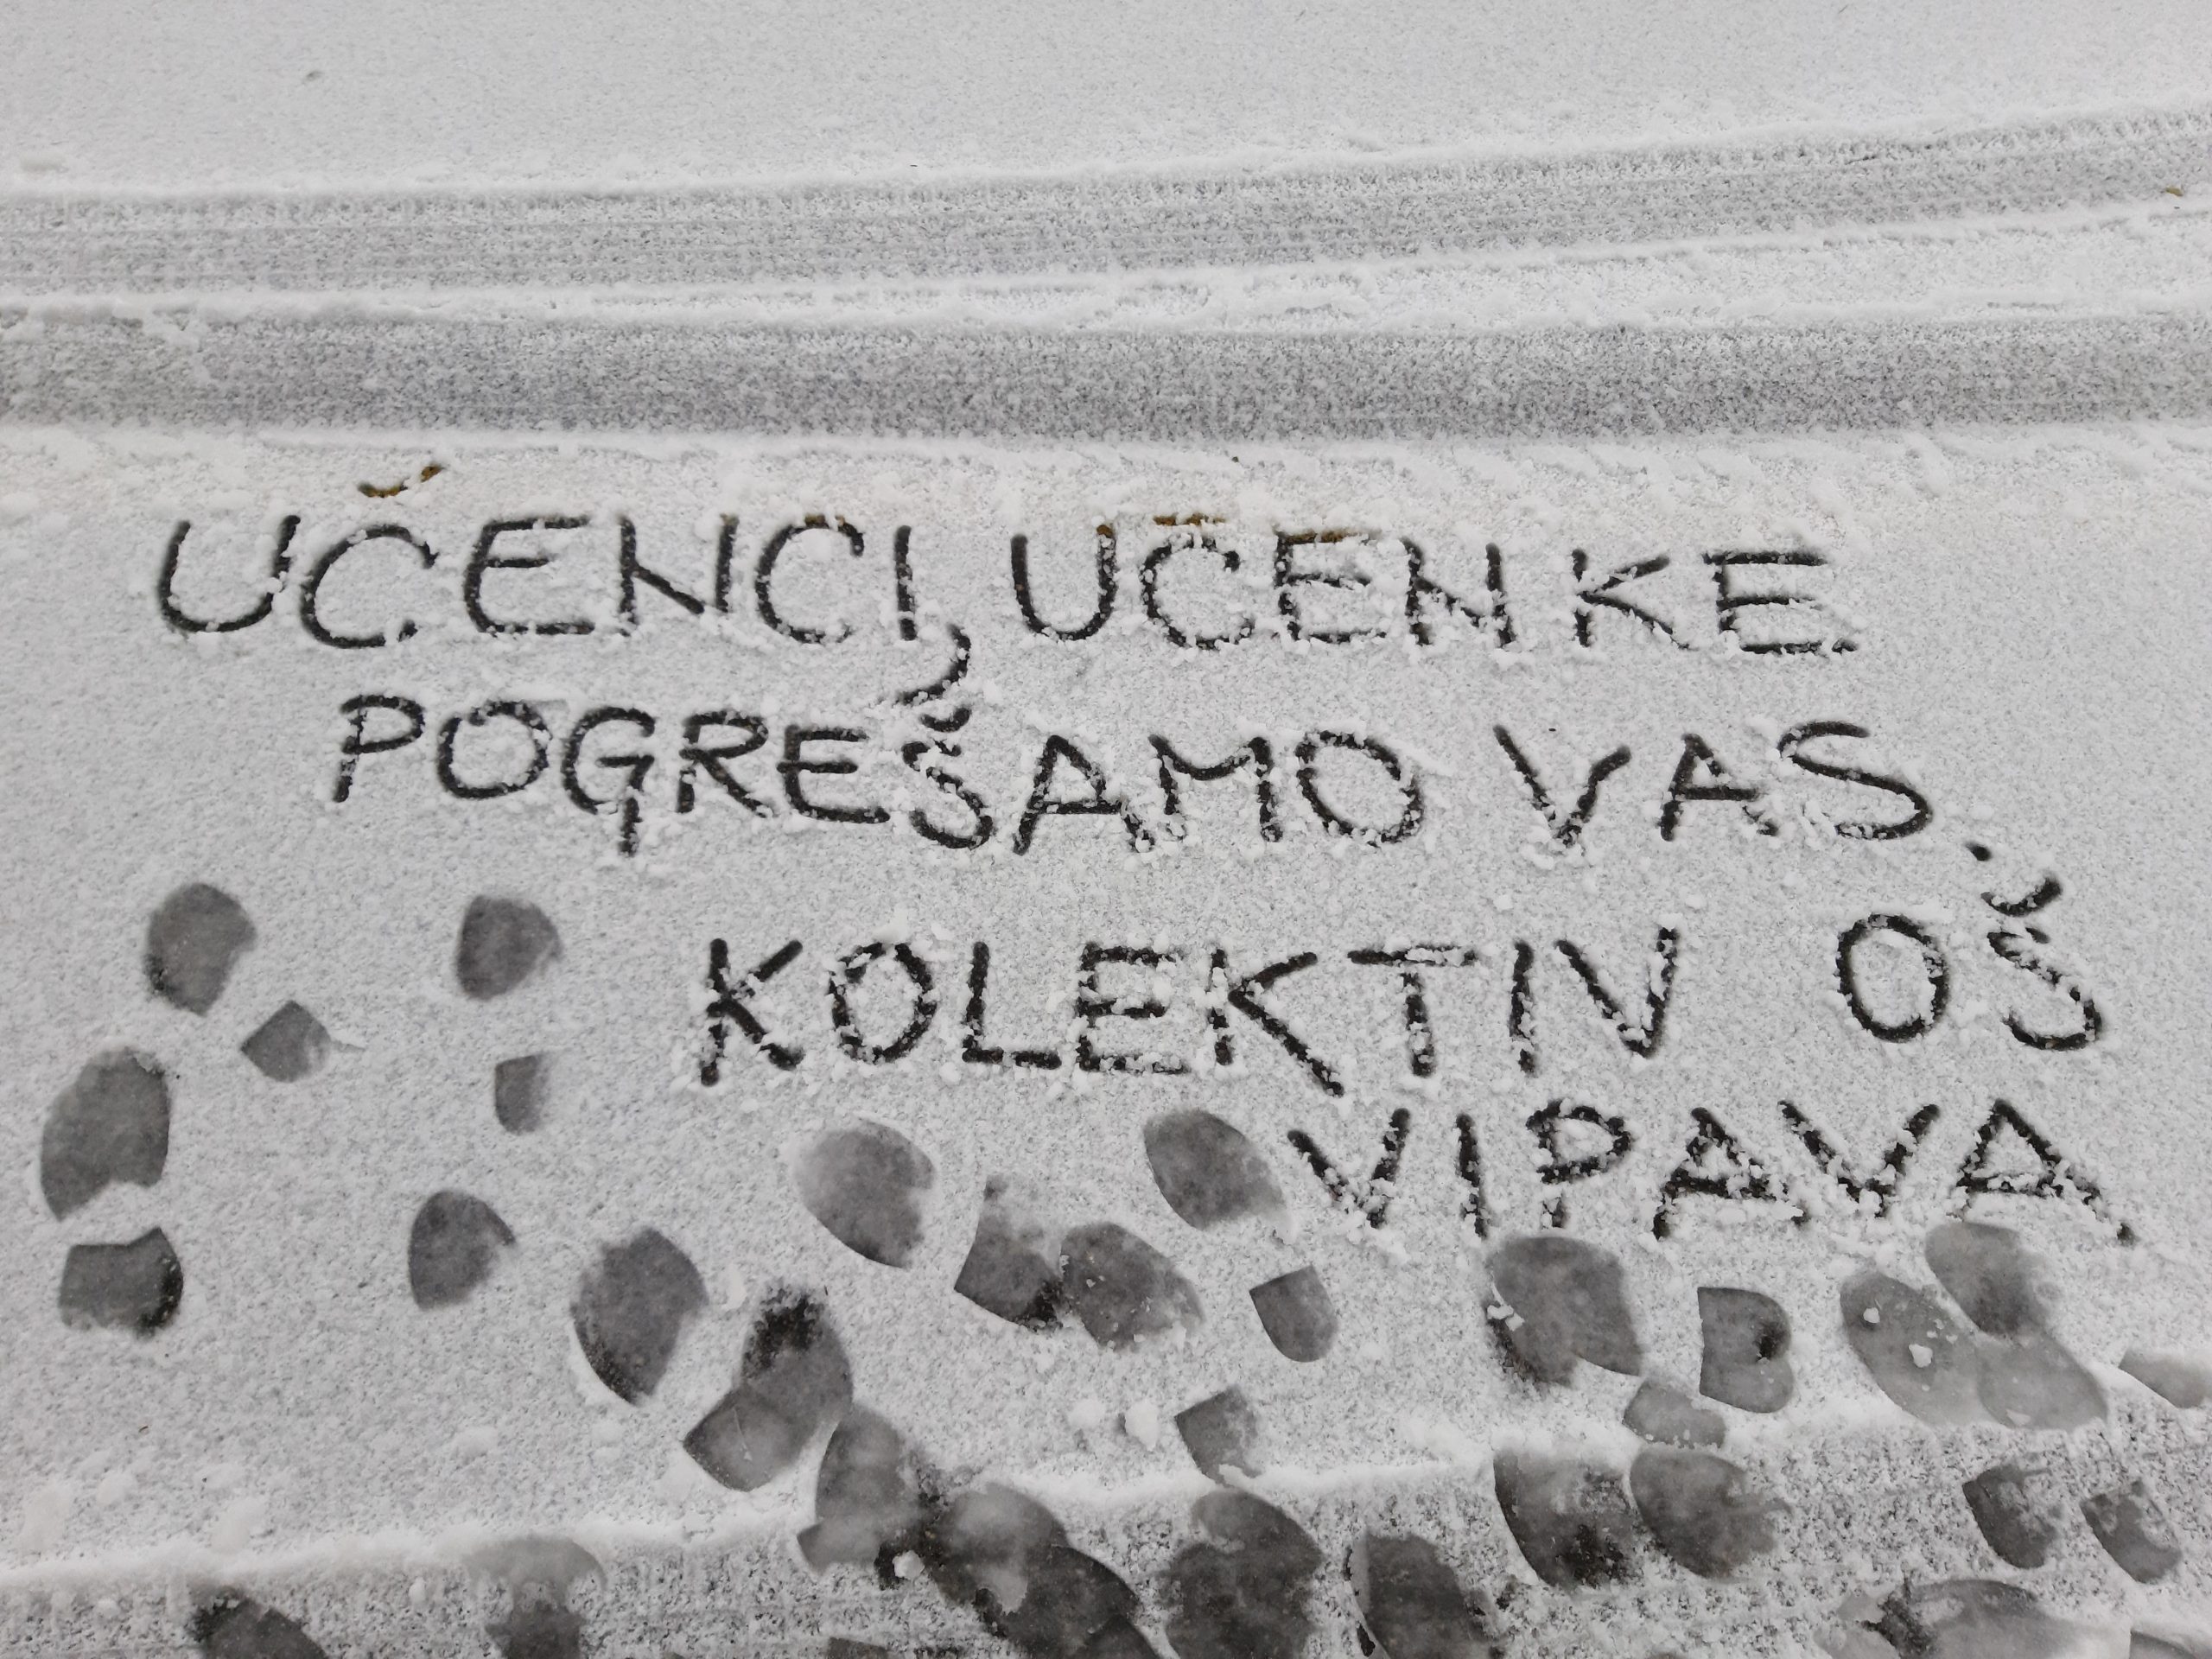 UČENCI, UČENKE
POGREŠAMO VAS.
KOLEKTIV OŠ
VIPAVA